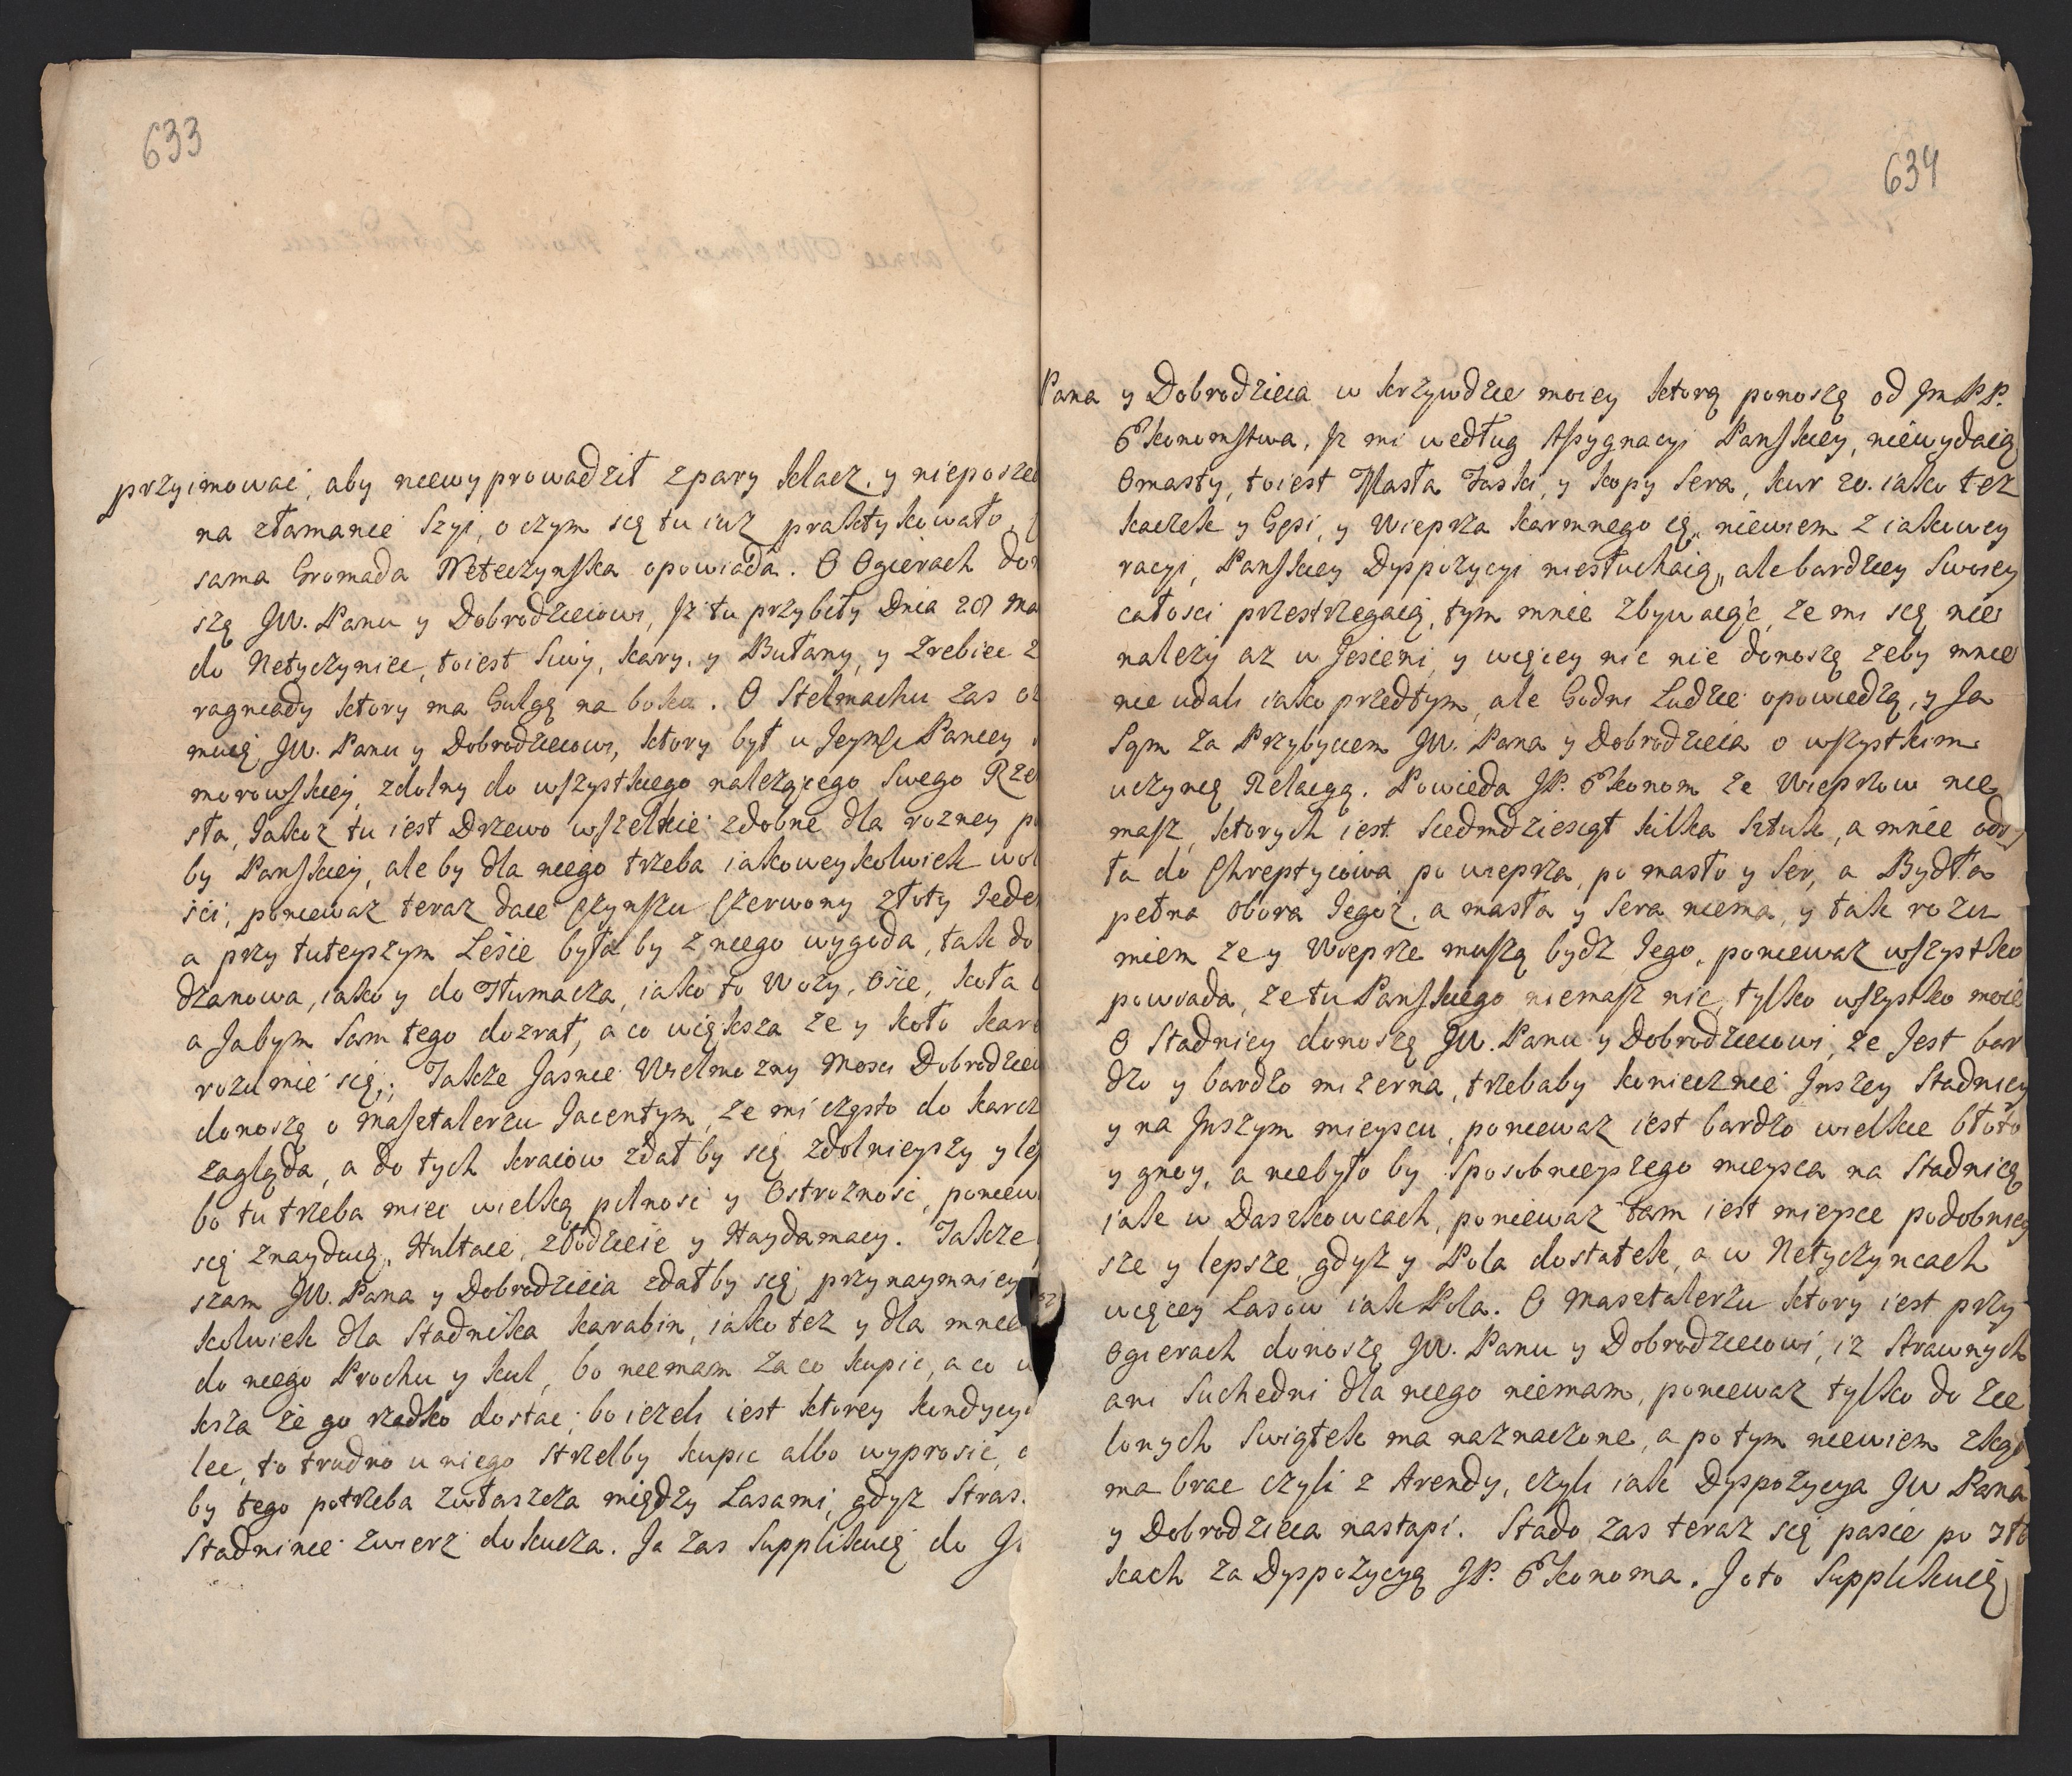 633
przyimować, aby niewyprowadził z pary klacz, y nieposzed
na złamanie Szyi, o czym się tu iuż praktykowało,
sama Gromada Neteczynska opowiada. O Ogierach don
szę JW. Panu y Dobrodzieiowi, iż tu przybeły Dnia 28 ma
do Netyczyniec, toiest Siwy, kary, y Bułany, y Zrebiec z
ragniady ktory ma Gulgę na boku. O Stelmachu zas oz
muię JW. Panu y Dobrodzieiowi, ktory był u Jeymści Paniey
morowskiey, zdolny do wszystkiego należącego Swego Rze
sła, Jakoż tu iest Drzewo wszelkie zdobne dla rozney po
by Panskiey, ale by dla niego trzeba iakoweykolwiek wol
ści, poniewaz teraz daie Czynszu Czerwony złoty Jede
a przy tuteyszym Lesie była by z niego wygoda, tak do
dzanowa, iako y do Tłumacza, iako to Wozy, Osie, koła
a Jabym Sam tego dozrał, a co większa że y koło kar
rozumie się; Także Jasnie Wielmozny Mosci Dobrodzieiu
donoszę o masztalerzu Jacentym, że mi często do karcz
zagląda, a do tych kraiow zdał by się zdolnieyszy y lep
bo tu trzeba mieć wielką pilnosć y Ostroznosć, poniew
się znayduią, Hultaie, złodzieie y Haydamacy. Także
szam JW. Pana y Dobrodzieia zdał by się przynaymniey
kolwiek dla Stadnika karabin, iako tez y dla mnie
do niego Prochu y kul, bo niemam za co kupic, a co w
ksza że go rzadko dostac, bo ieżeli iest ktorey kondycyi
lec, to trudno u niego Strzelby kupic albo wyprosic,
by tego potrzeba zwłaszcza między Lasami, gdyż Stras.
Stadninie zwierz dokucza. Ja zas Supplikuię do J
634
Pana y Dobrodzieia w krzywdzie moiey ktorą ponoszę od Jm PP.
Ekonomstwa, iż mi według Assygnacyi Panskiey, niewydaią
Omasty, toiest Masła Faski, y kopy Sera, kur 20. iako tez
kaczek y Gęsi, y Wieprza karmnego ię, niewiem z iakowey
racyi, Panskiey Dyspozycyi niesłuchaią, ale bardziey Swoiey
całosci przestrzegaią, tym mnie zbywaiąc, że mi się nie
należy aż w Jesieni, y więcey nic nie donoszę żeby mnie
nie udali iako przedtym, ale Godni Ludzie opowiedzą, y Ja
Sam za Przybyciem JW. Pana y Dobrodzieia o wszystkim
uczynię Relacyą. Powieda JP. Ekonom że Wieprzow nie
masz, ktorych iest Siedmdziesiąt kilka Sztuk, a mnie odsy
ła do Chreptyiowa po wieprza, po masło y Ser, a Bydła
pełna obora Jegoż, a masła y Sera niema, y tak rozu
miem że y Wieprze muszą bydz Jego, poniewaz wszystko
powiada, że tu Panskiego niemasz nic, tylko wszystko moie
O Stadnicy donoszę JW. Panu y Dobrodzieiowi, że Jest bar
dzo y bardzo mizerna, trzebaby koniecznie Jnszey Stadnicy
y na Jnszym mieyscu, poniewaz iest bardzo wielkie błoto
y gnoy, a niebyło by Sposobnieyszego mieysca na Stadnicę
iak w Daszkowcach, poniewaz tam iest mieysce podobniey
sze y lepsze, gdyż y Pola dostatek, a w Netyczyncach
więcey Lasow iak Pola. O Masztalerzu ktory iest przy
Ogierach donoszę JW. Panu y Dobrodzieiowi, iż Strawnych
ani Suchedni dla niego niemam, poniewaz tylko do Zie
lonych Swiątek ma naznaczone, a potym niewiem zkąd
ma brac czyli z Arendy, czyli iak Dyspozycya JW Pana
y Dobrodzieia nastąpi. Stado zas teraz się pasie po Jtó
kach za Dyspozycyą JP. Ekonoma. J oto Supplikuię